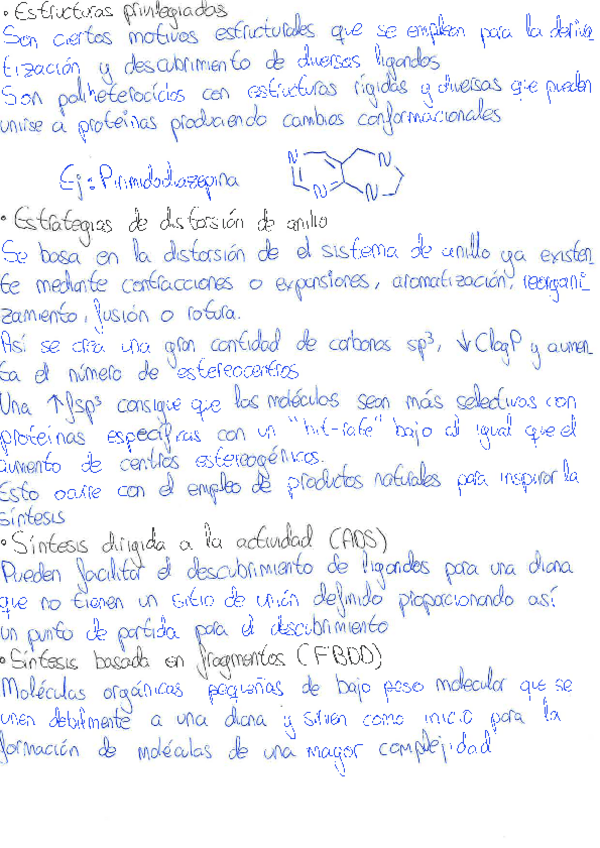 • Estructuras privilegiadas
Son ciertos motivos estructurales que se emplean para la deriva
tización y descubrimiento de diversos ligandos
Son poliheterociclos con estructuras rígidas y diversas que pueden
unirse a proteínas produciendo cambios conformacionales
Ej: Pirimidodiazepina
N N N N
• Estrategias de distorsión de anillo
Se basa en la distorsión de el sistema de anillo ya existen
te mediante contracciones o expansiones, aromatización, reorgani
zamiento, fusión o rotura.
Así se crea una gran cantidad de carbonos sp³, ↓ClogP y aumen
ta el número de estereocentros
Una ↑fsp³ consigue que las moléculas sean más selectivas con
proteínas específicas con un "hit-rate" bajo al igual que el
aumento de centros estereogénicos.
Esto ocurre con el empleo de productos naturales para inspirar la
síntesis
• Síntesis dirigida a la actividad (ADS)
Pueden facilitar el descubrimiento de ligandos para una diana
que no tienen un sitio de unión definido proporcionando así
un punto de partida para el descubrimiento
• Síntesis basada en fragmentos (FBDD)
Moléculas orgánicas pequeñas de bajo peso molecular que se
unen debilmente a una diana y sirven como inicio para la
formación de moléculas de una mayor complejidad